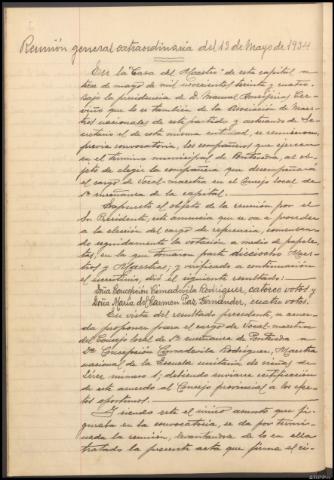 Reunión general extraordinaria del 13 de Mayo de 1934
En la "Casa del Maestro" de esta capital a
trece de mayo de mil novecientos treinta y cuatro,
bajo la presidencia de D. Manuel
que lo es también de la Asociación de Maes-
tros nacionales de este partido y actuando de Se-
cretario el de esta misma entidad, se reunieron,
previa convocatoria, los compañeros que ejercen
en el término municipal de Pontevedra, al ob-
jeto de elegir la compañera que desempeñará
el cargo de Vocal-maestra en el Consejo local de
1ª enseñanza de la capital.
Expuesto el objeto de la reunión por el
Sr. Presidente, este anuncia que se va a proceder
a la elección del cargo de referencia, comenzan-
do seguidamente la votación a medio de papele-
tas, en la que tomaron parte dieciocho Maes-
tros y Maestras; y verificado a continuación
el escrutinio, dió el siguiente resultado:
Doña Concepción Cimadevila Rodríguez, catorce votos y
Doña María del Carmen Paz Fernández, cuatro votos.
En vista del resultado precedente, se acuer-
da proponer para el cargo de Vocal-maestra
del Consejo local de 1ª enseñanza de Pontevedra a
Dª Concepción Cimadevila Rodríguez, Maestra
nacional de la Escuela unitaria de niñas de
Lérez número 1, debiendo enviarse certificación
de este acuerdo al Consejo provincial a los efec-
tos oportunos.
Y siendo este el único asunto que fi-
guraba en la convocatoria, se da por termi-
nada la reunión, levantándose de lo en ella
tratado la presente acta que firma el